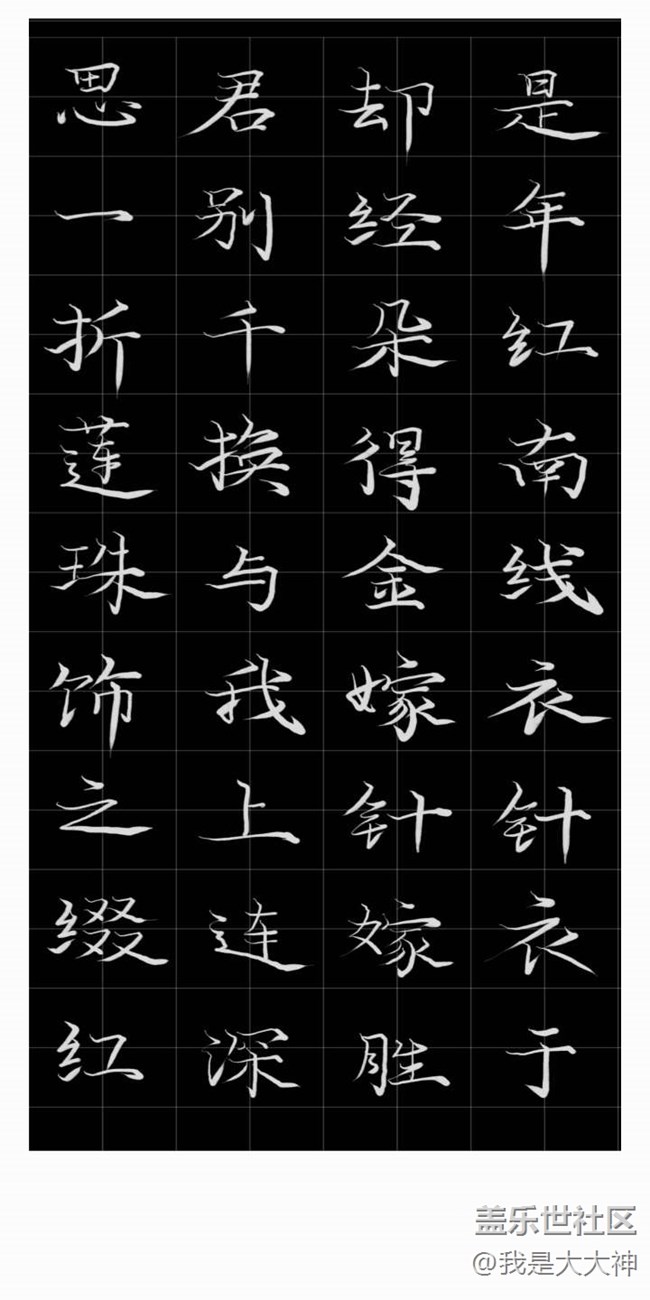 思君却是
一别经年
折千朵红
莲换得南
珠与金线
饰我嫁衣
之上针针
缀连嫁衣
红深胜于
盖乐世社区
@我是大大神